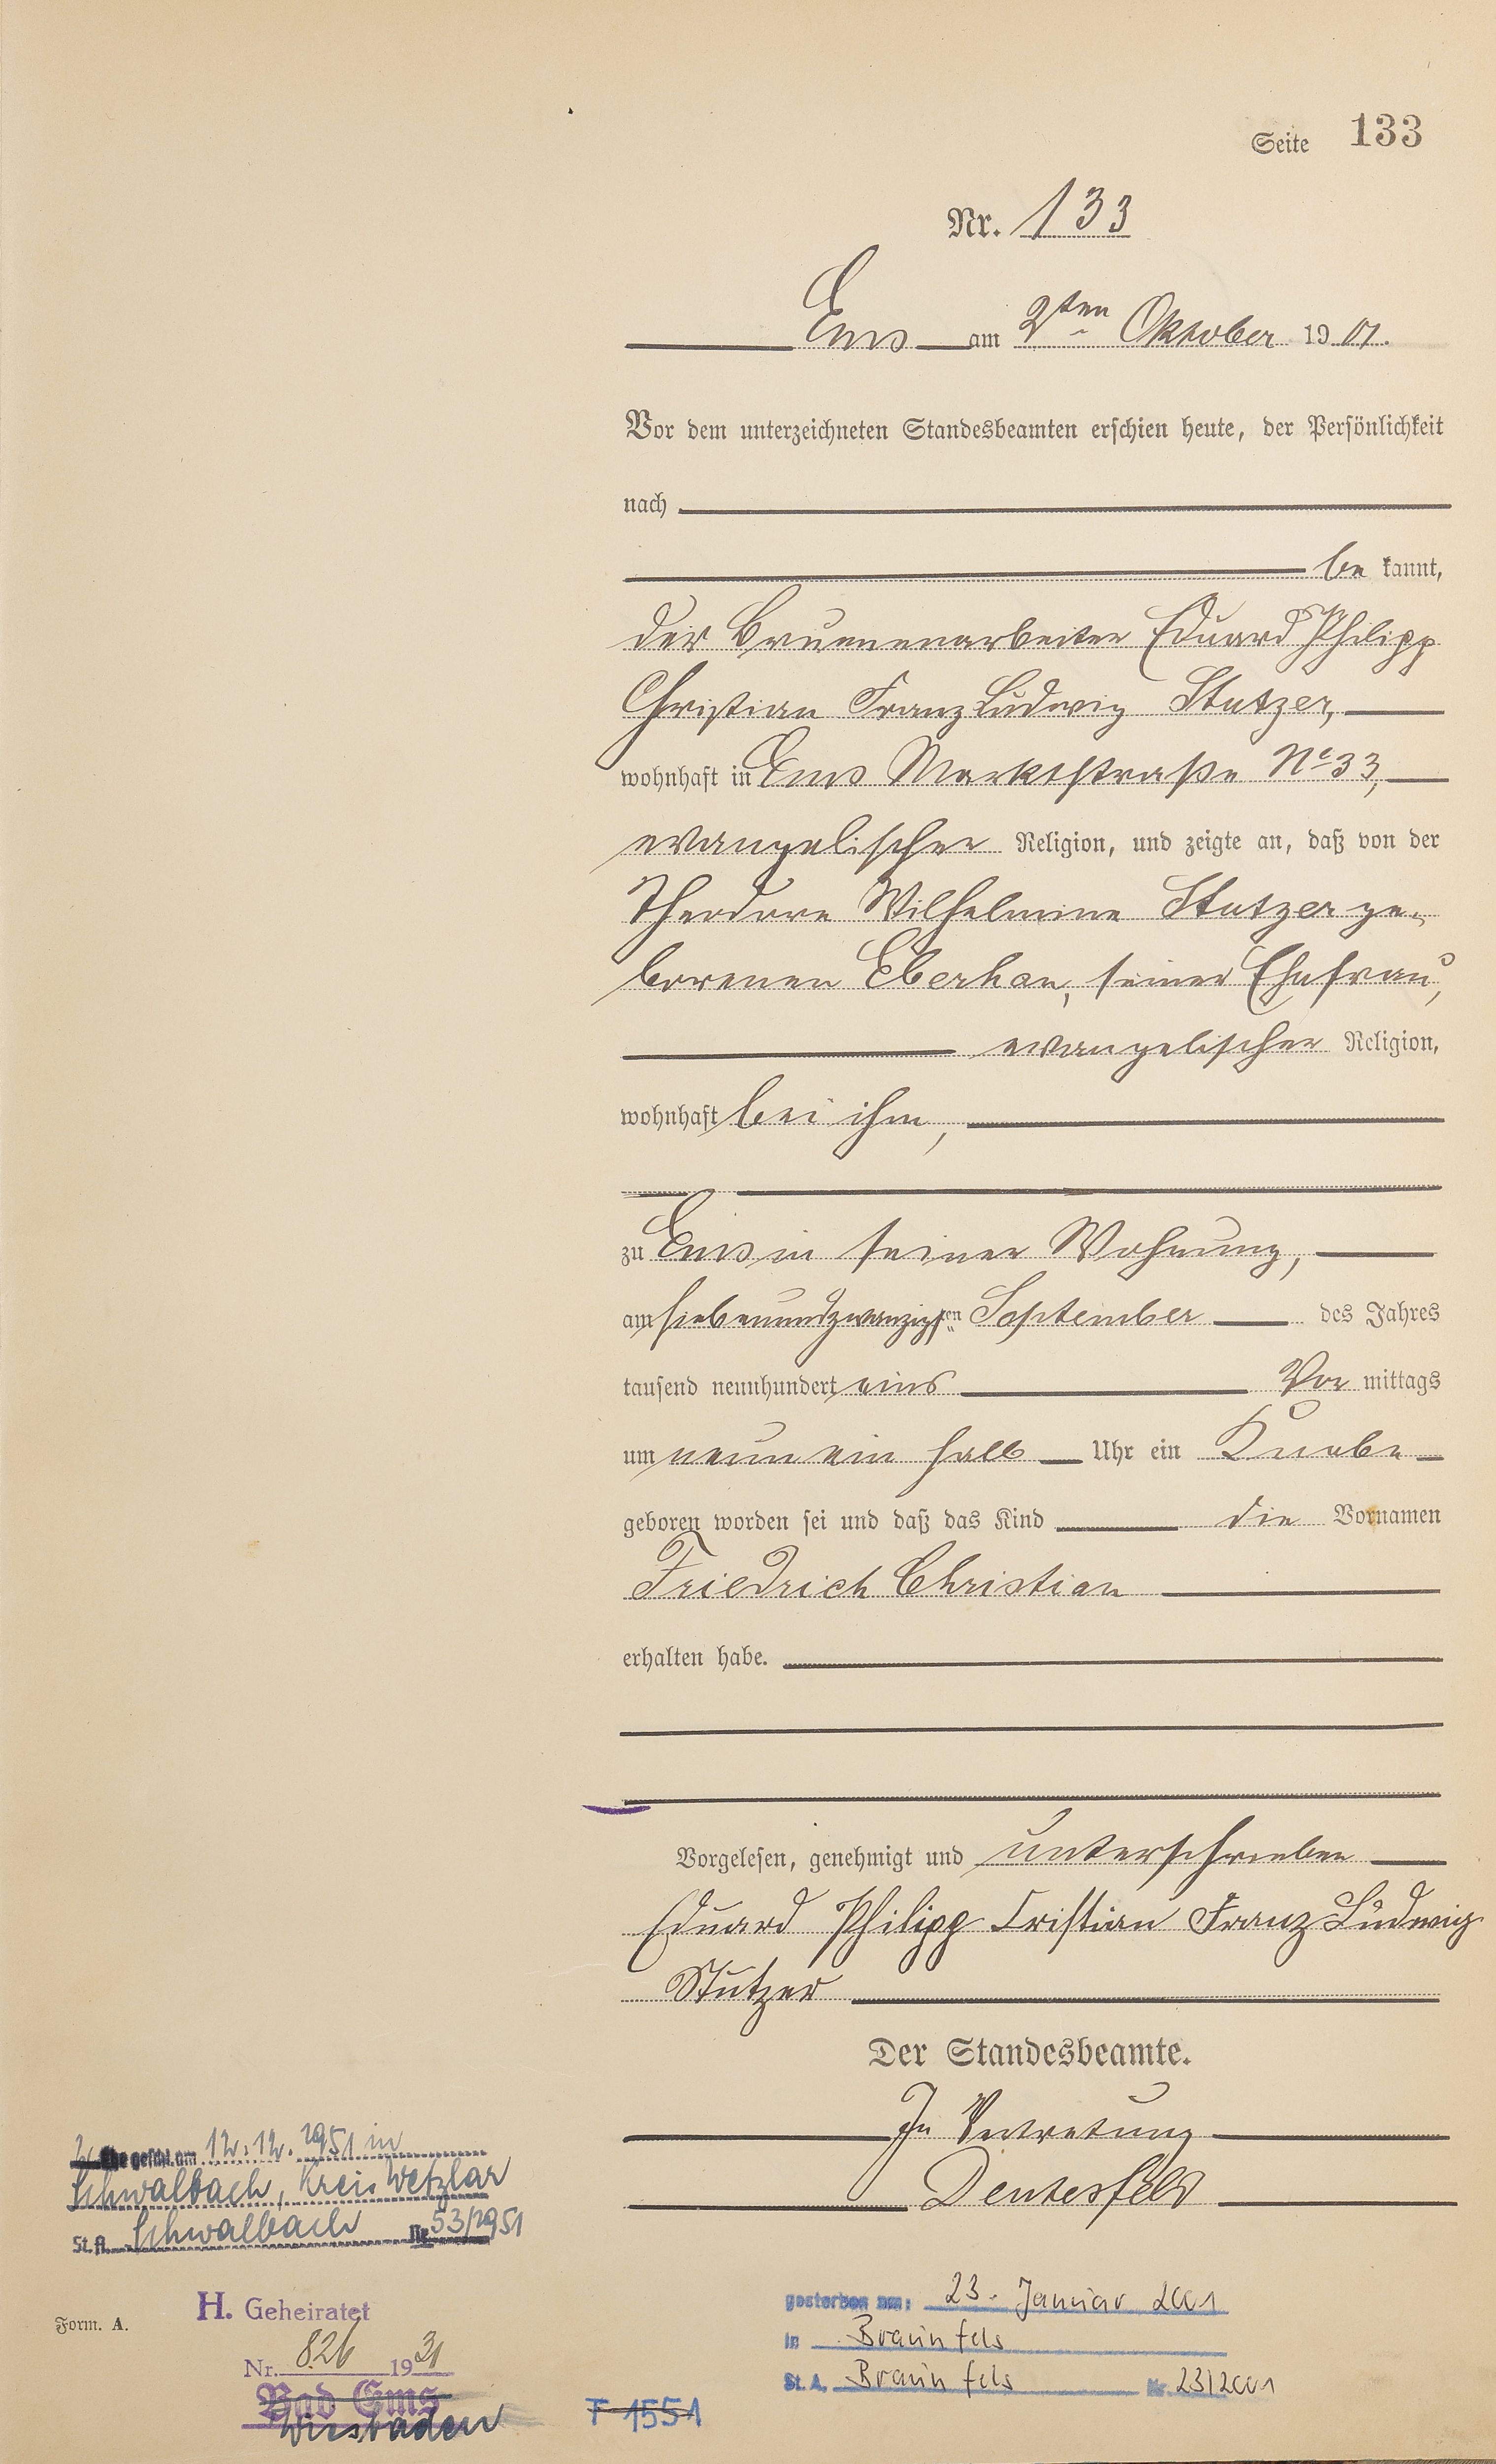 Seite 133
Nr. 133
Ems am 2ten Oktober 1901.
Vor dem unterzeichneten Standesbeamten erschien heute, der Persönlichkeit
nach
be kannt,
der Brunnenarbeiter Eduard Philipp
Christian Franz Ludwig Stutzer,
wohnhaft in Ems Marktstraße No 33,
evangelischer Religion, und zeigte an, daß von der
Theodore Wilhelmine Stutzer ge-
borenen Eberhan, seiner Ehefrau,
evangelischer Religion,
wohnhaft bei ihm,
zu Ems in seiner Wohnung,
am siebenundzwanzigsten September des Jahres
tausend neunhundert eins Vor mittags
um neun ein halb Uhr ein Knabe
geboren worden sei und daß das Kind die Vornamen
Friedrich Christian
erhalten habe.
Vorgelesen, genehmigt und unterschrieben
Eduard Philipp Cristian Franz Ludwig
Stutzer
Der Standesbeamte.
In Vertretung
2. Ehe geschl. am 12.12.1951 in
Schwalbach, Kreis Wetzlar
St.A. Schwalbach Nr. 53/1951
H. Geheiratet
Nr. 826 1931
Bad Ems
Wiesbaden
Form. A.
F 1551
gestorben am: 23. Januar 2001
in Braunfels
St.A. Braunfels Nr. 23/2001